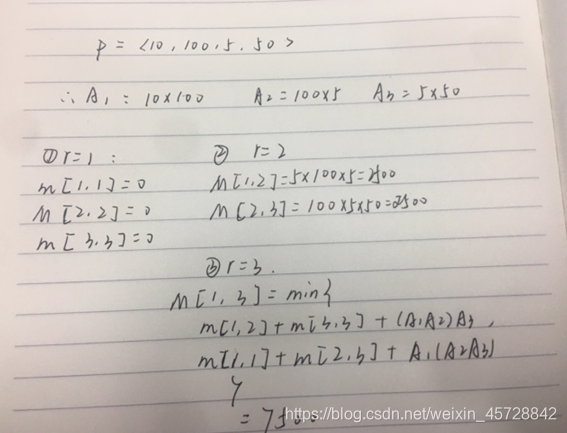 P = <10, 100, 5, 50>
∴ A₁ = 10×100 A₂ = 100×5 A₃ = 5×50
① r=1 :
m[1,1]=0
M[2,2]=0
m[3,3]=0
② r=2
M[1,2]=5×100×5=2500
M[2,3]=100×5×50=2500
③ r=3.
M[1,3] = min{
m[1,2]+m[3,3]+(A₁A₂)A₃,
m[1,1]+m[2,3]+A₁(A₂A₃)
}
=7500
https://blog.csdn.net/weixin_45728842